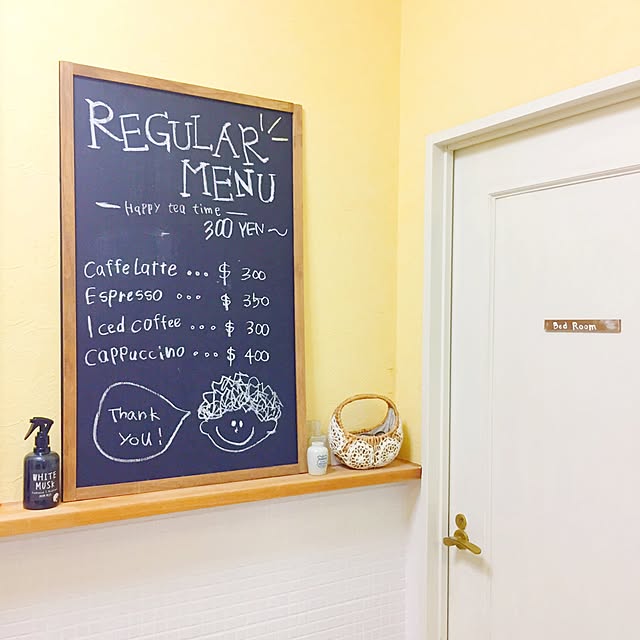 REGULAR
MENU
Happy tea time
300 YEN～
Caffe Latte ... $ 300
Espresso ... $ 350
Iced coffee ... $ 300
Cappuccino ... $ 400
Thank
you!
WHITE
MUSK
Bed Room